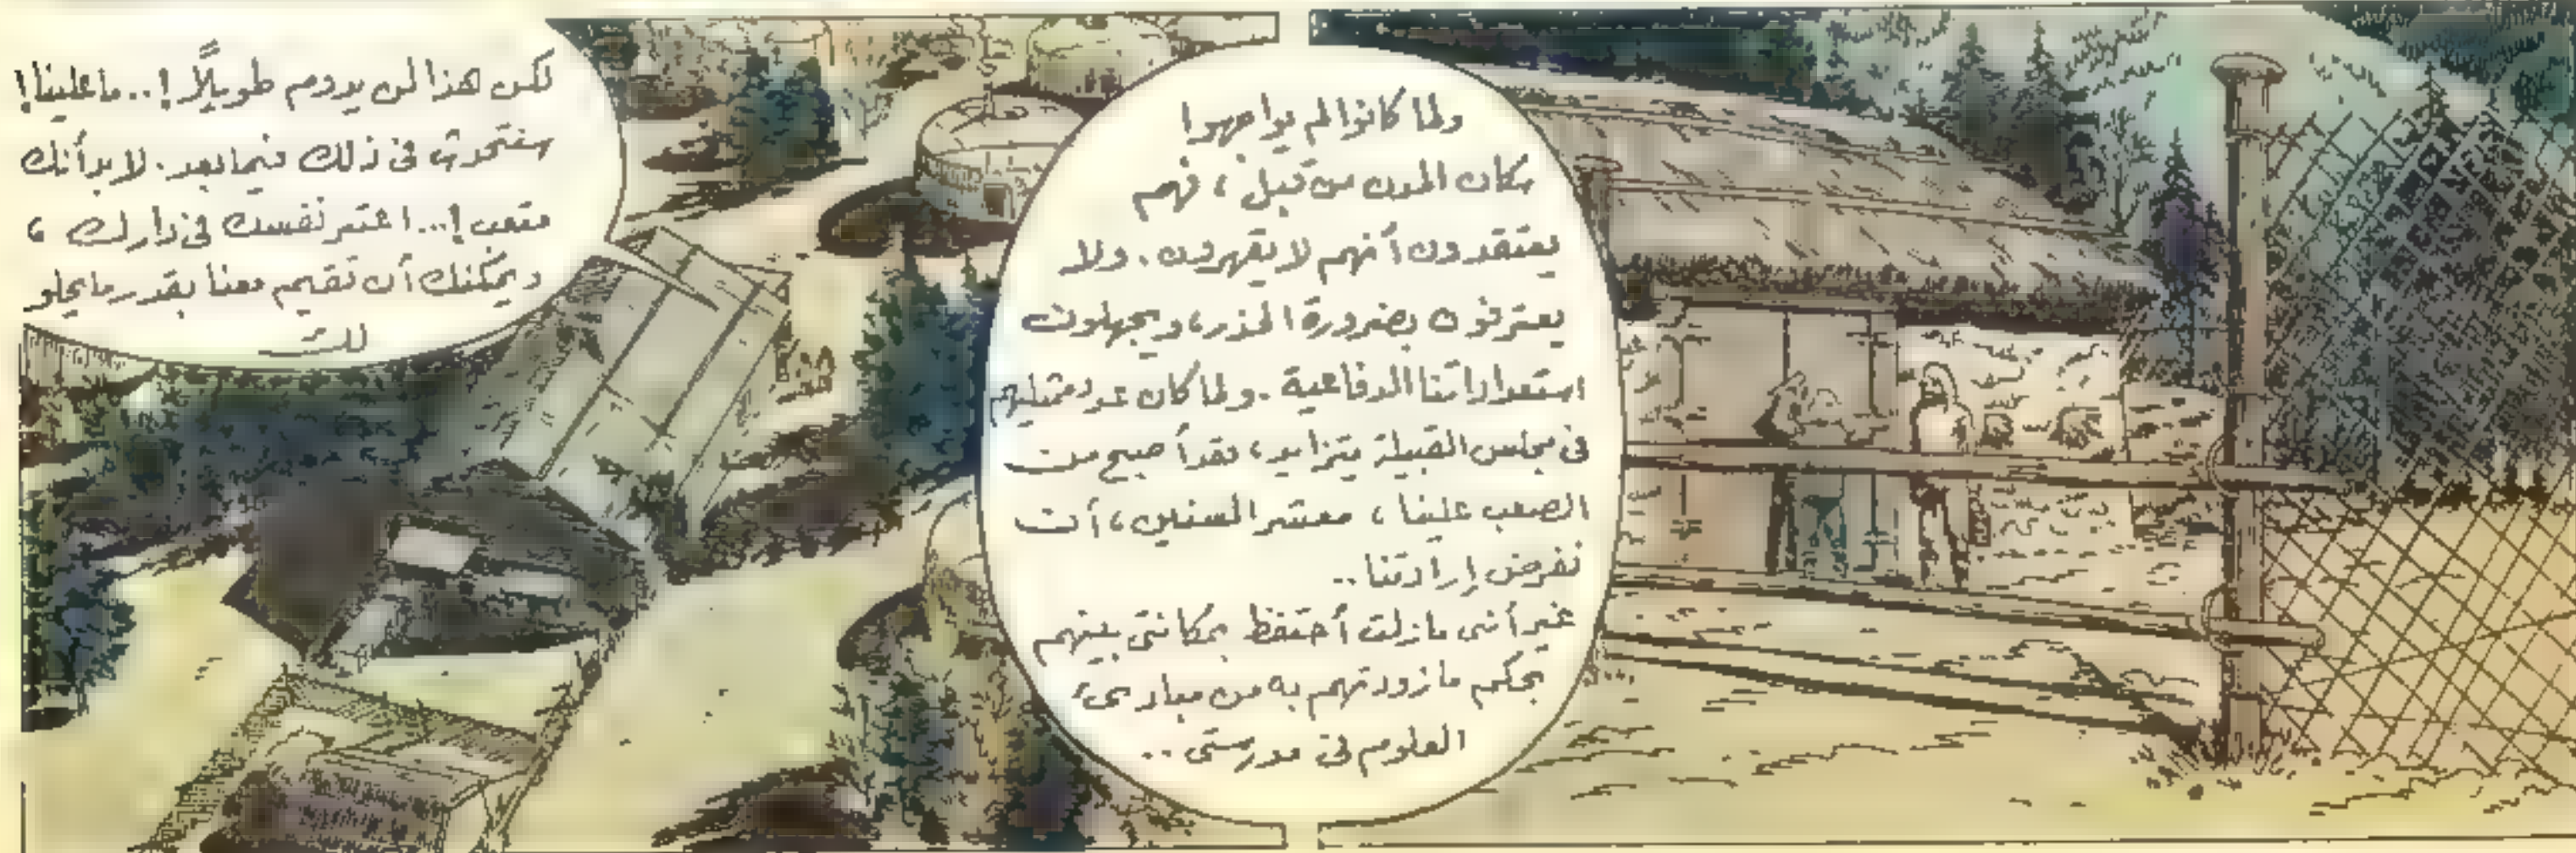 ولما كانوا لم يواجهوا
سكان المدن من قبل، فهم
يعتقدون أنهم لا يقهرون. ولا
يعترفون بضرورة الحذر، ويجهلون
استعداداتنا الدفاعية. ولما كان عدد ممثليهم
فى مجلس القبيلة يتزايد، فقد أصبح من
الصعب علينا، معشر المسنين، أن
نفرض إرادتنا..
غير أننى مازلت أحتفظ بمكانتى بينهم
بحكم ما زودتهم به من مبادىء
العلوم فى مدرستى..
لكن هذا لن يدوم طويلاً!.. ما علينا!
سنتحدث فى ذلك فيما بعد. لا بد أنك
متعب!... اعتبر نفسك فى دارك،
ويمكنك أن تقيم معنا بقدر ما يحلو
لك